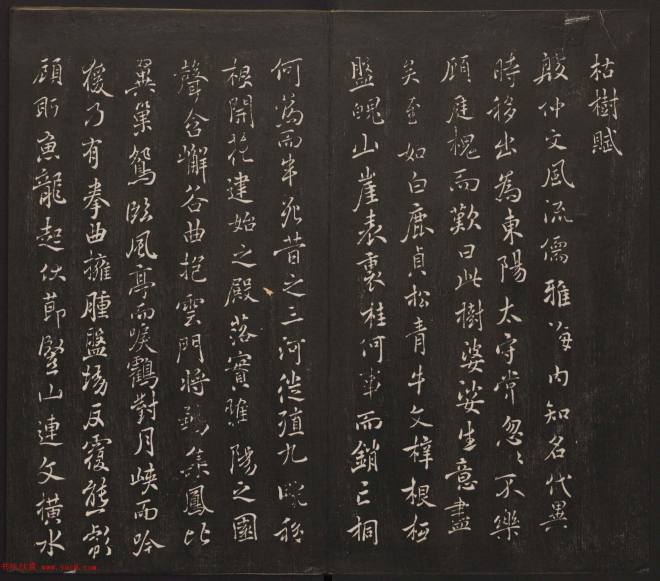 枯樹賦
殷仲文風流儒雅海内知名代異
時移出為東陽太守常忽〻不樂
顧庭槐而歎曰此樹婆娑生意盡
矣至如白鹿貞松青牛文梓根柢
盤魄山崖表裏桂何事而銷亡桐
何為而半死昔之三河徙殖九畹移
根開花建始之殿落實睢陽之園
聲含嶰谷曲抱雲門將雛集鳳比
翼巢鴛臨風亭而唳鶴對月峽而吟
猨乃有拳曲擁腫盤坳反覆熊彪
顧盼魚龍起伏節豎山連文橫水
书法欣赏 www.yac8.com